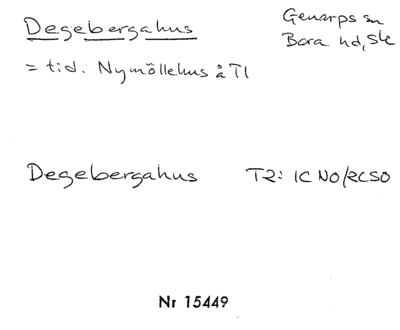 Degebergahus
Genarps sn
Bara hd, Sk
= tid. Nymöllehus å T1
Degebergahus
T2: 1C NO/2C SO
Nr 15449